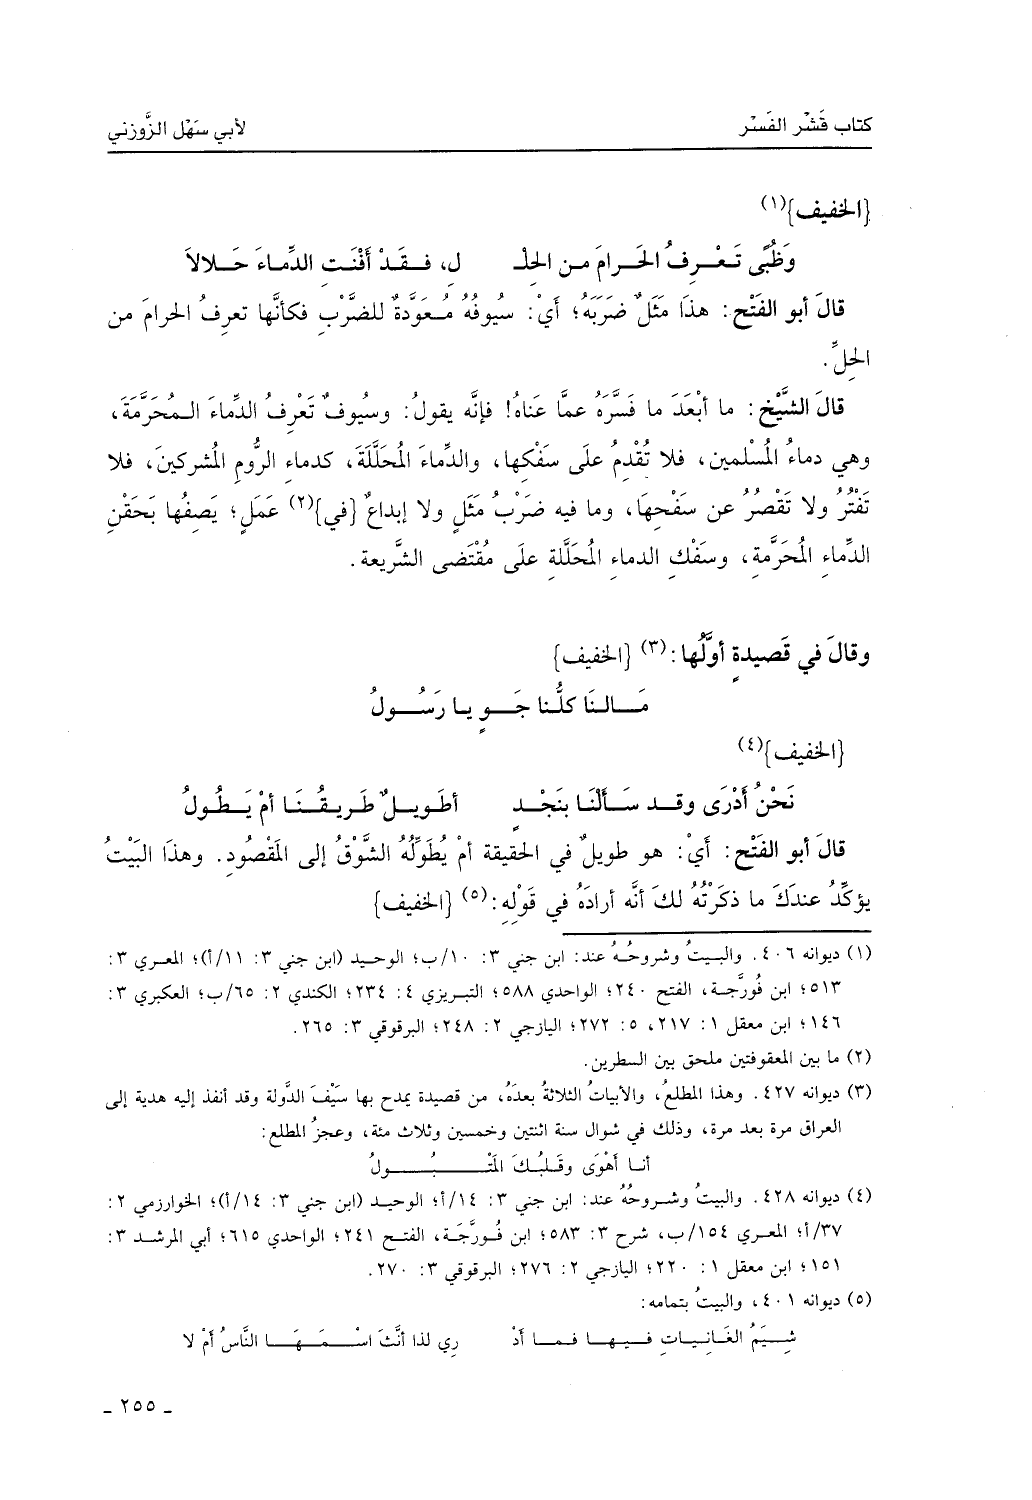 كتاب قَشْر الفَسْر لأبي سَهْل الزَّوزني
{الخفيف}(١)
وَظُبًى تَعْرِفُ الحَرامَ من الحِلْـ ـلِ، فقَدْ أَفْنَتِ الدِّماءَ حَلالاَ
قالَ أبو الفَتْح: هذَا مَثَلٌ ضَرَبَهُ؛ أيْ: سُيوفُهُ مُعَوَّدةٌ للضَّرْبِ فكأنَّها تعرفُ الحرامَ من
الحِلِّ.
قالَ الشَّيْخ: ما أبْعَدَ ما فَسَّرَهُ عمَّا عَناهُ! فإنَّه يقولُ: وسُيوفٌ تَعْرِفُ الدِّماءَ المُحَرَّمَةَ،
وهي دماءُ المُسْلمين، فلا تُقْدِمُ علَى سفَكِها، والدِّماءَ المُحَلَّلَةَ، كدماءِ الرُّومِ المُشركينَ، فلا
تَفْتُرُ ولا تَقْصُرُ عن سَفْحِهَا، وما فيه ضَرْبُ مَثَلٍ ولا إبداعٌ {في}(٢) عَمَلٍ؛ يَصِفُها بَحَقْنِ
الدِّماءِ المُحَرَّمةِ، وسَفْكِ الدماءِ المُحَلَّلةِ علَى مُقْتَضى الشَّريعة.
وقالَ في قَصيدةٍ أوَّلُها:(٣) {الخفيف}
مَالنَا كلُّنا جَوٍ يا رَسُولُ
{الخفيف}(٤)
نَحْنُ أدْرَى وقد سَألْنَا بنَجْدٍ أطَويلٌ طَريقُنَا أمْ يَطُولُ
قالَ أبو الفَتْح: أَيْ: هو طويلٌ في الحقيقة أمْ يُطَوِّلُهُ الشَّوْقُ إلى المَقْصُودِ. وهذَا البَيْتُ
يؤكِّدُ عندَكَ ما ذكَرْتُهُ لكَ أنَّه أرادَهُ في قَوْلِهِ:(٥) {الخفيف}
(١) ديوانه ٤٠٦. والبيتُ وشروحُهُ عند: ابن جني ٣: ١٠/ب؛ الوحيد (ابن جني ٣: ١١/أ)؛ المعري ٣:
٥١٣؛ ابن فُورَّجة، الفتح ٢٤٠؛ الواحدي ٥٨٨؛ التبريزي ٤: ٢٣٤؛ الكندي ٢: ٦٥/ب؛ العكبري ٣:
١٤٦؛ ابن معقل ١: ٢١٧، ٥: ٢٧٢؛ اليازجي ٢: ٢٤٨؛ البرقوقي ٣: ٢٦٥.
(٢) ما بين المعقوفتين ملحق بين السطرين.
(٣) ديوانه ٤٢٧. وهذا المطلعُ، والأبياتُ الثلاثةُ بعدَهُ، من قصيدة يمدح بها سَيْفَ الدَّولة وقد أنفذ إليه هدية إلى
العراق مرة بعد مرة، وذلك في شوال سنة اثنتين وخمسين وثلاث مئة، وعجزُ المطلع:
أنا أهْوَى وقَلبُكَ المَتْبُولُ
(٤) ديوانه ٤٢٨. والبيتُ وشروحُهُ عند: ابن جني ٣: ١٤/أ؛ الوحيد (ابن جني ٣: ١٤/أ)؛ الخوارزمي ٢:
٣٧/أ؛ المعري ١٥٤/ب، شرح ٣: ٥٨٣؛ ابن فُورَّجَة، الفتح ٢٤١؛ الواحدي ٦١٥؛ أبي المرشد ٣:
١٥١؛ ابن معقل ١: ٢٢٠؛ اليازجي ٢: ٢٧٦؛ البرقوقي ٣: ٢٧٠.
(٥) ديوانه ٤٠١، والبيتُ بتمامه:
شِيَمُ الغَانِياتِ فيها فما أدْ ري لذا أنَّثَ اسْمَهَا النَّاسُ أمْ لا
ـ ٢٥٥ ـ